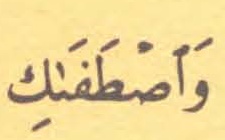 وَٱصْطَفَىٰكِ